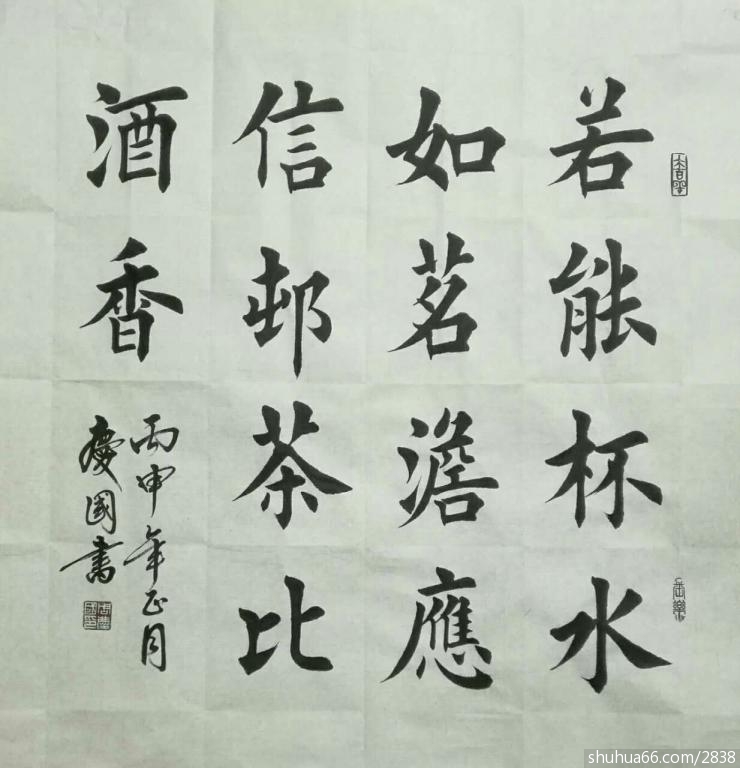 若能杯水
如茗澹應
信邨茶比
酒香
丙申年正月
慶國書
shuhua66.com/2838